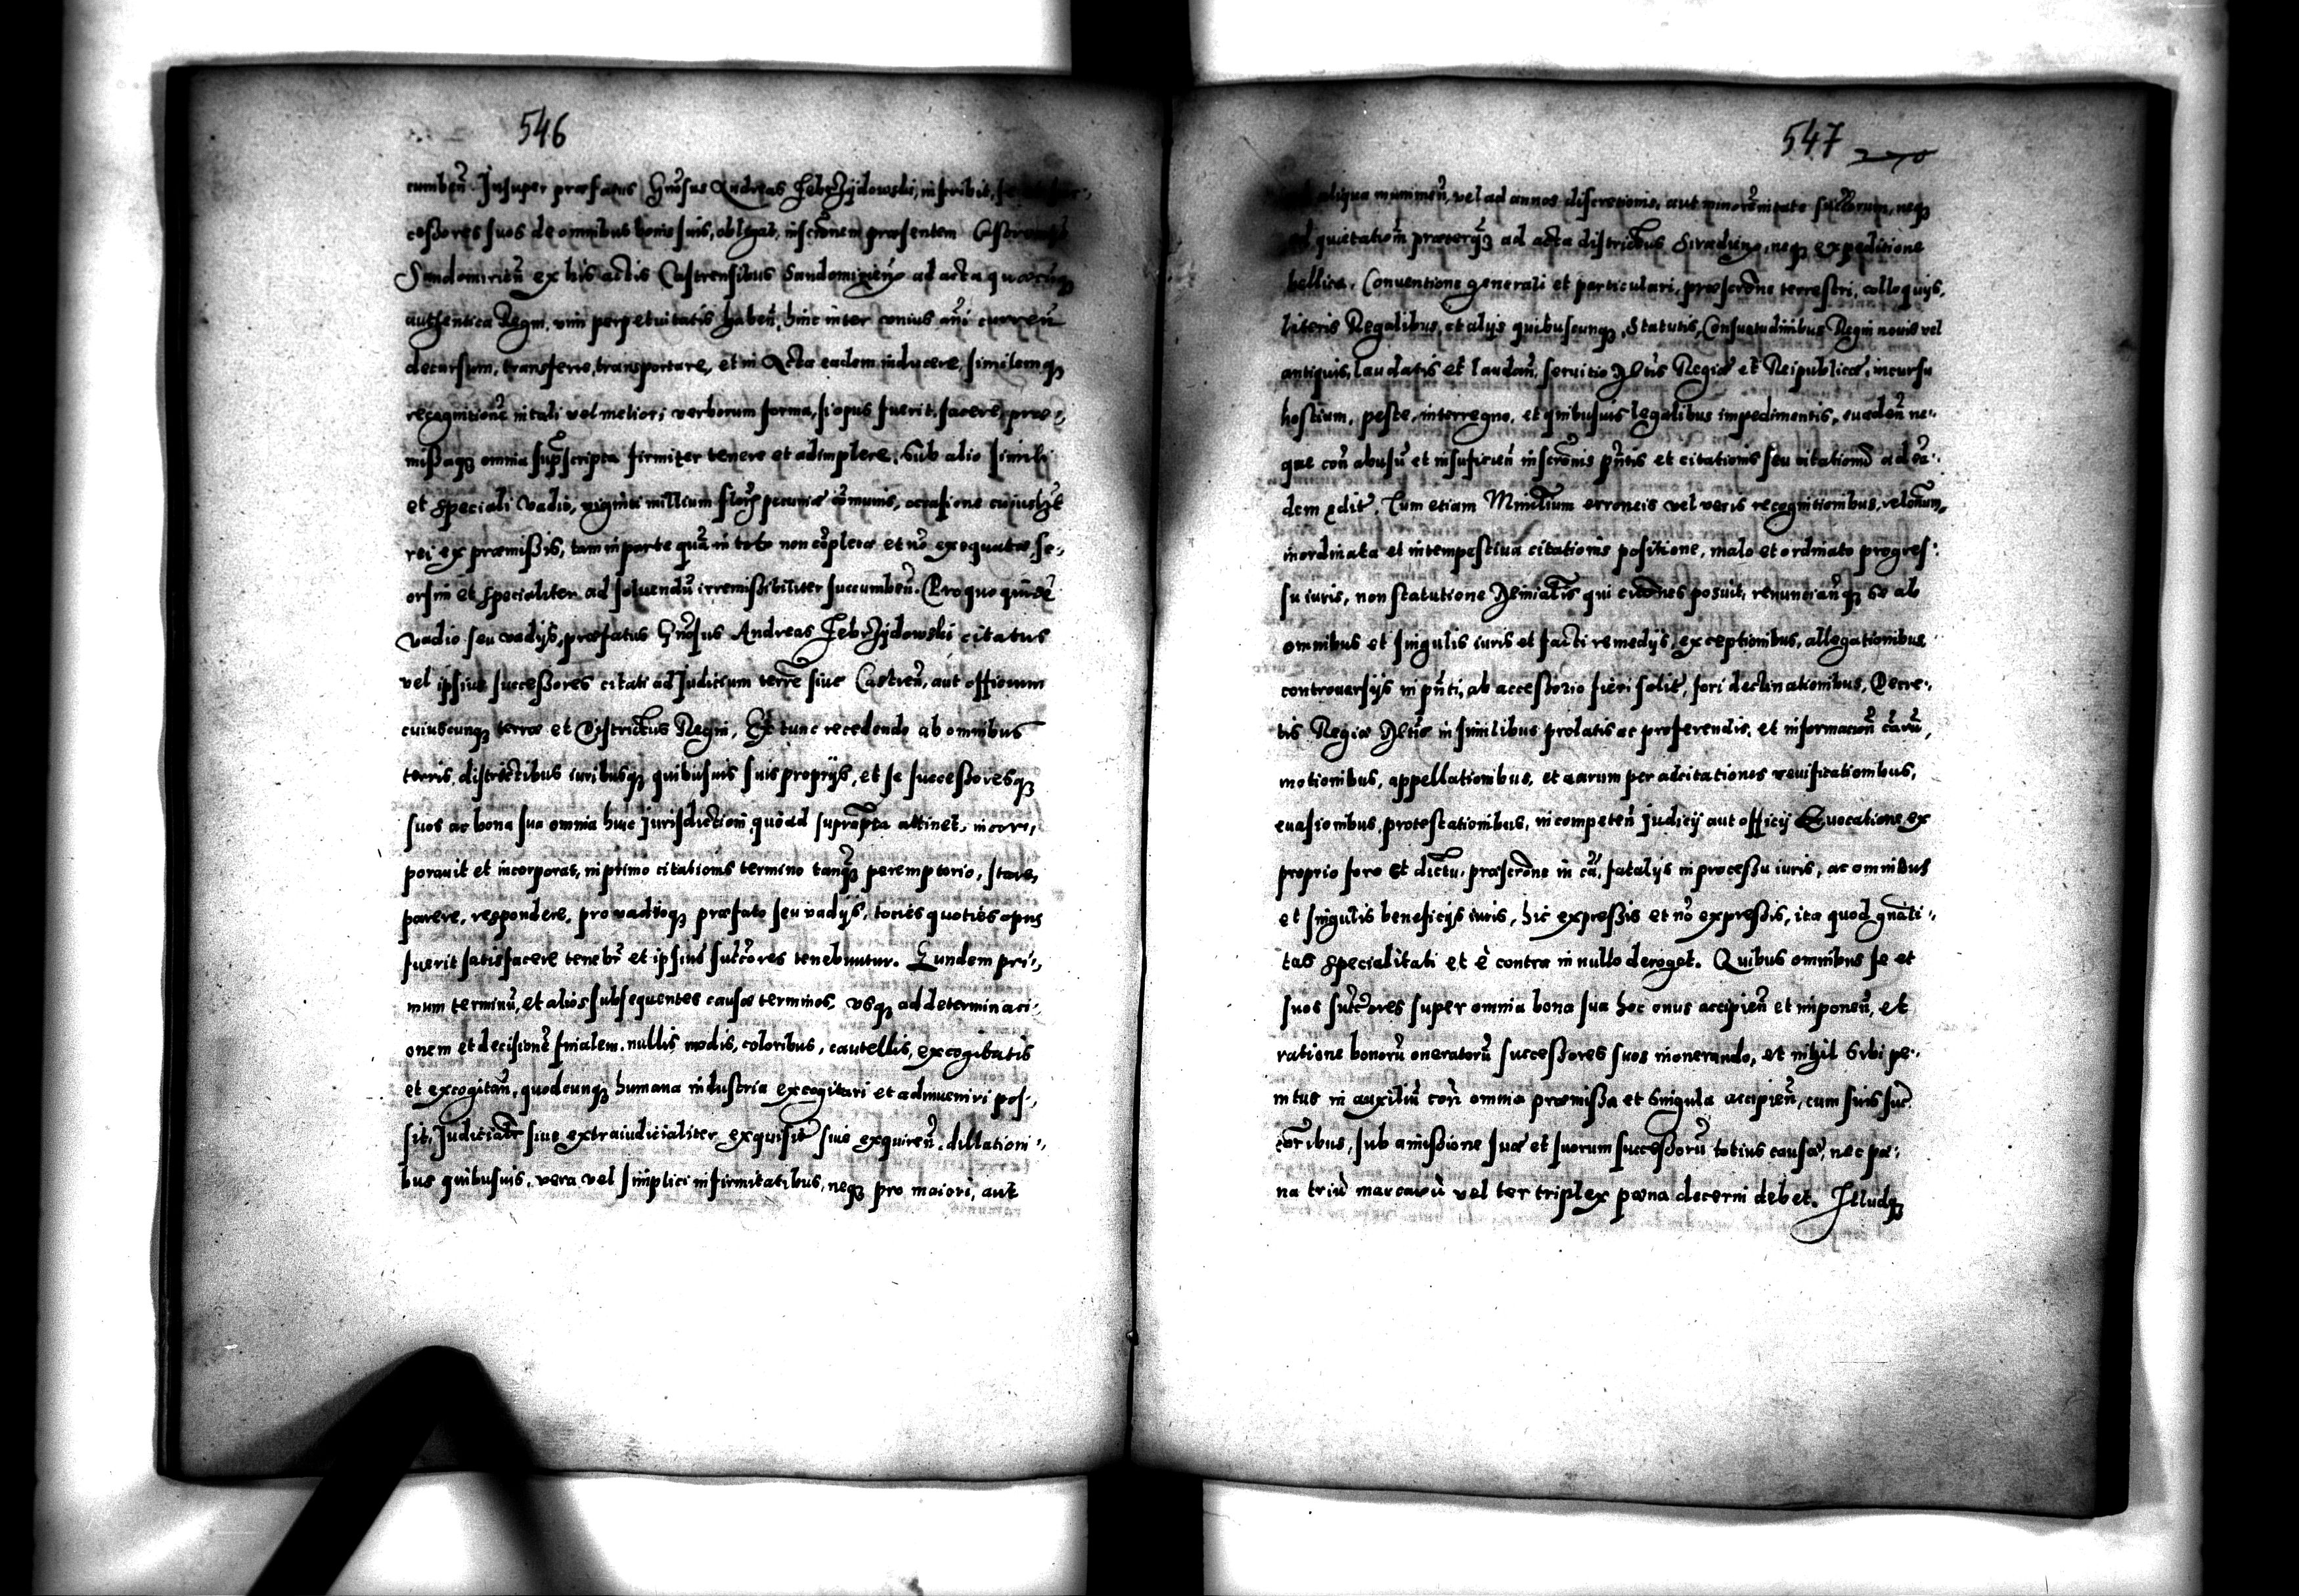 546
cumbeñ. Insuper præfatus Gñosus Andreas Zebrzÿdowski, inscribit, se
cessores suos de omnibus bonis suis, obligat, inscrõnem præsentem
Sandomirieñ ex his actis Castrensibus Sandomirieñ ad acta quæcunqꝫ
authentica Regni, vim perpetuitatis habeñ, hinc inter conius añi curreñ
decursum, transferre, transportare, et in Acta eadem inducere, similemqꝫ
recognitionẽ in tali vel meliori verborum forma, si opus fuerit, facere, præ-
missaqꝫ omnia suprascripta firmiter tenere et adimplere. Sub alio simili
et speciali vadio, viginti millium floꝝ pecuniæ cõmunis, occasione cuiuslꝫt
rei ex præmissis, tam in parte quã in toto non cõpletæ et nõ exequutæ, se-
orsim et specialiter ad soluendũ irremissibiliter succumbeñ. Pro quo quidẽ
vadio seu vadÿs, præfatus Gñosus Andreas Zebrzÿdowski citatus
vel ipsius successores citati ad Judicium terrẽ siue Castreñ, aut officium
cuiuscunqꝫ terræ et Districtus Regni, Ex tunc recedendo ab omnibus
terris, districtibus iuribusqꝫ quibusuis suis proprÿs, et se successoresqꝫ
suos ac bona sua omnia huic Jurisdictioni, quoad suprascripta attinet, incor-
porauit et incorporat, in primo citationis termino tanqꝫ peremptorio, stare,
parere, respondere, pro vadioqꝫ præfato seu vadÿs, toties quoties opus
fuerit satisfacere tenebr̃ et ipsius succõres tenebuntur. Eundem pri-
mum terminũ, et alios subsequentes causæ terminos, vsqꝫ ad determinaci-
onem et decisionẽ finalem, nullis modis, coloribus, cautellis, excogitatis
et excogitañ, quodcunqꝫ humana industria excogitari et adinueniri pos-
sit, Judicialr̃ siue extraiudicialiter exquisit̃ siue exquireñ, dillationi-
bus quibusuis, vera vel simplici infirmitatibus, neqꝫ pro maiori, aut
547
aliqua munimeñ, vel ad annos discretionis, aut minorẽnitate succõrum, neqꝫ
ad quietationẽ præterqꝫ ad acta districtus Siradieñ, neqꝫ expeditione
bellica, Conuentione generali et particulari, præscrõne terrestri, colloquÿs,
literis Regalibus, et alÿs quibuscunqꝫ, Statutis, Consuetudinibus Regni nouis vel
antiquis, laudatis et laudañ, seruitio Mtis Regiæ et Reipublicæ, incursu
hostium, peste, interregno, et quibusuis legalibus impedimentis, euadeñ ne-
que coñ abusũ et insuficieñ inscrõnis pñtis et citationis seu citationũ ad eã-
dem ędit̃. Tum etiam Minrĩlium erroneis vel veris recognitionibus, relõnum,
inordinata et intempestiua citationis positione, malo et ordinato progres-
su iuris, non statutione Mĩnrialis qui citãones posuit, renuncianqꝫ se ab
omnibus et singulis iuris et facti remedÿs, exceptionibus, allegationibus
controuersÿs in pñti, ab accessorio fieri solit̃, fori declinationibus, Decre-
tis Regiæ Mtis in similibus prolatis ac proferendis, et informacioñ cãrũ,
motionibus, appellationibus, et earum per adcitationes verificationibus,
euasionibus, protestationibus, in competeñ Judicÿ aut officÿ Euocatione, ex
proprio foro et dictu, præscrõne in cã, fatalÿs in processu iuris, ac omnibus
et singulis beneficÿs iuris, hic expressis et nõ expressis, ita quod gñali-
tas specialitati et è contra in nullo deroget. Quibus omnibus se et
suos succõres super omnia bona sua hoc onus accipieñ et imponeñ, et
ratione bonorũ oneratorũ successores suos inonerando, et nihil sibi pe-
nitus in auxiliũ coñ omnia præmissa et singula accipieñ, cum suis suc
cõribus, sub amissione suæ et suorum successorũ totius causæ, nec pæ-
na triũ marcarũ vel ter triplex pæna decerni debet. Illudqꝫ